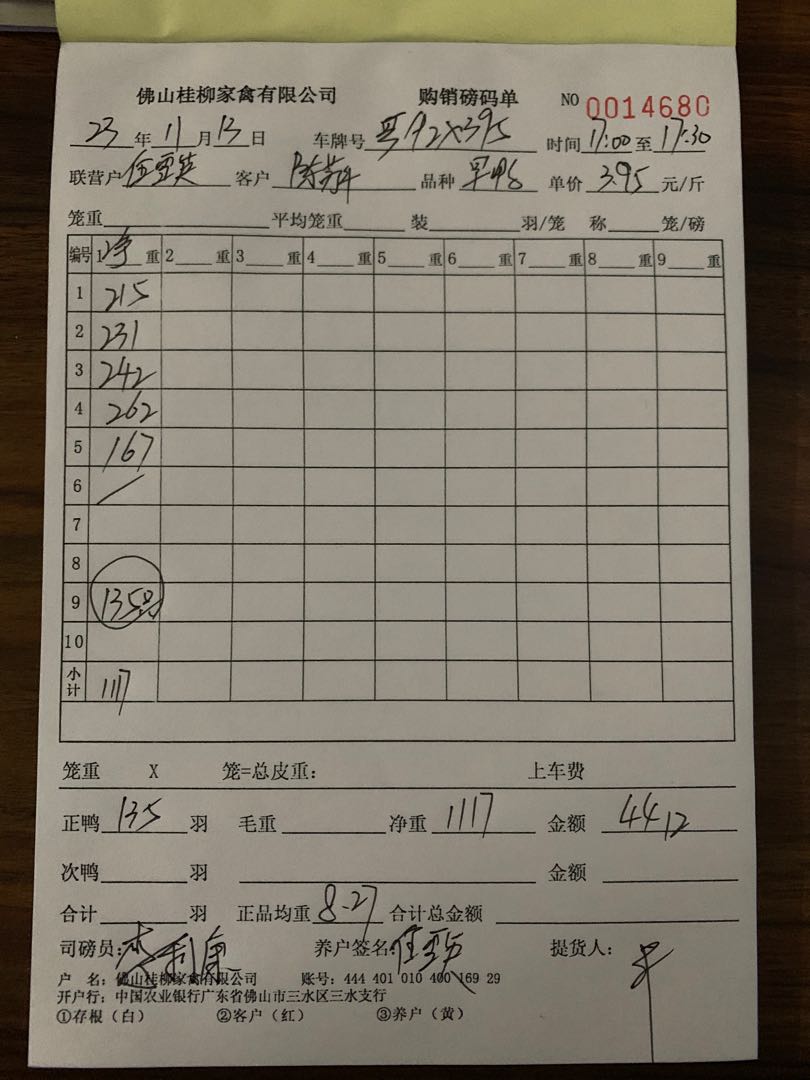 佛山桂柳家禽有限公司 购销磅码单 NO 0014680
23 年 11 月 13 日 车牌号 192X395 时间 17:00 至 17:30
联营户 客户 品种 单价 3.95 元/斤
笼重 平均笼重 装 羽/笼 称 笼/磅
编号 1 净 重 2 重 3 重 4 重 5 重 6 重 7 重 8 重 9 重
1 215
2 231
3 242
4 262
5 167
6 /
7
8
9 135羽
10
小计 1117
笼重 X 笼=总皮重: 上车费
正鸭 135 羽 毛重 净重 1117 金额 4412
次鸭 羽 金额
合计 羽 正品均重 8.27 合计总金额
司磅员: 养户签名: 提货人:
户 名: 佛山桂柳家禽有限公司 账号: 444 401 010 400 169 29
开户行: 中国农业银行广东省佛山市三水区三水支行
①存根(白) ②客户(红) ③养户(黄)